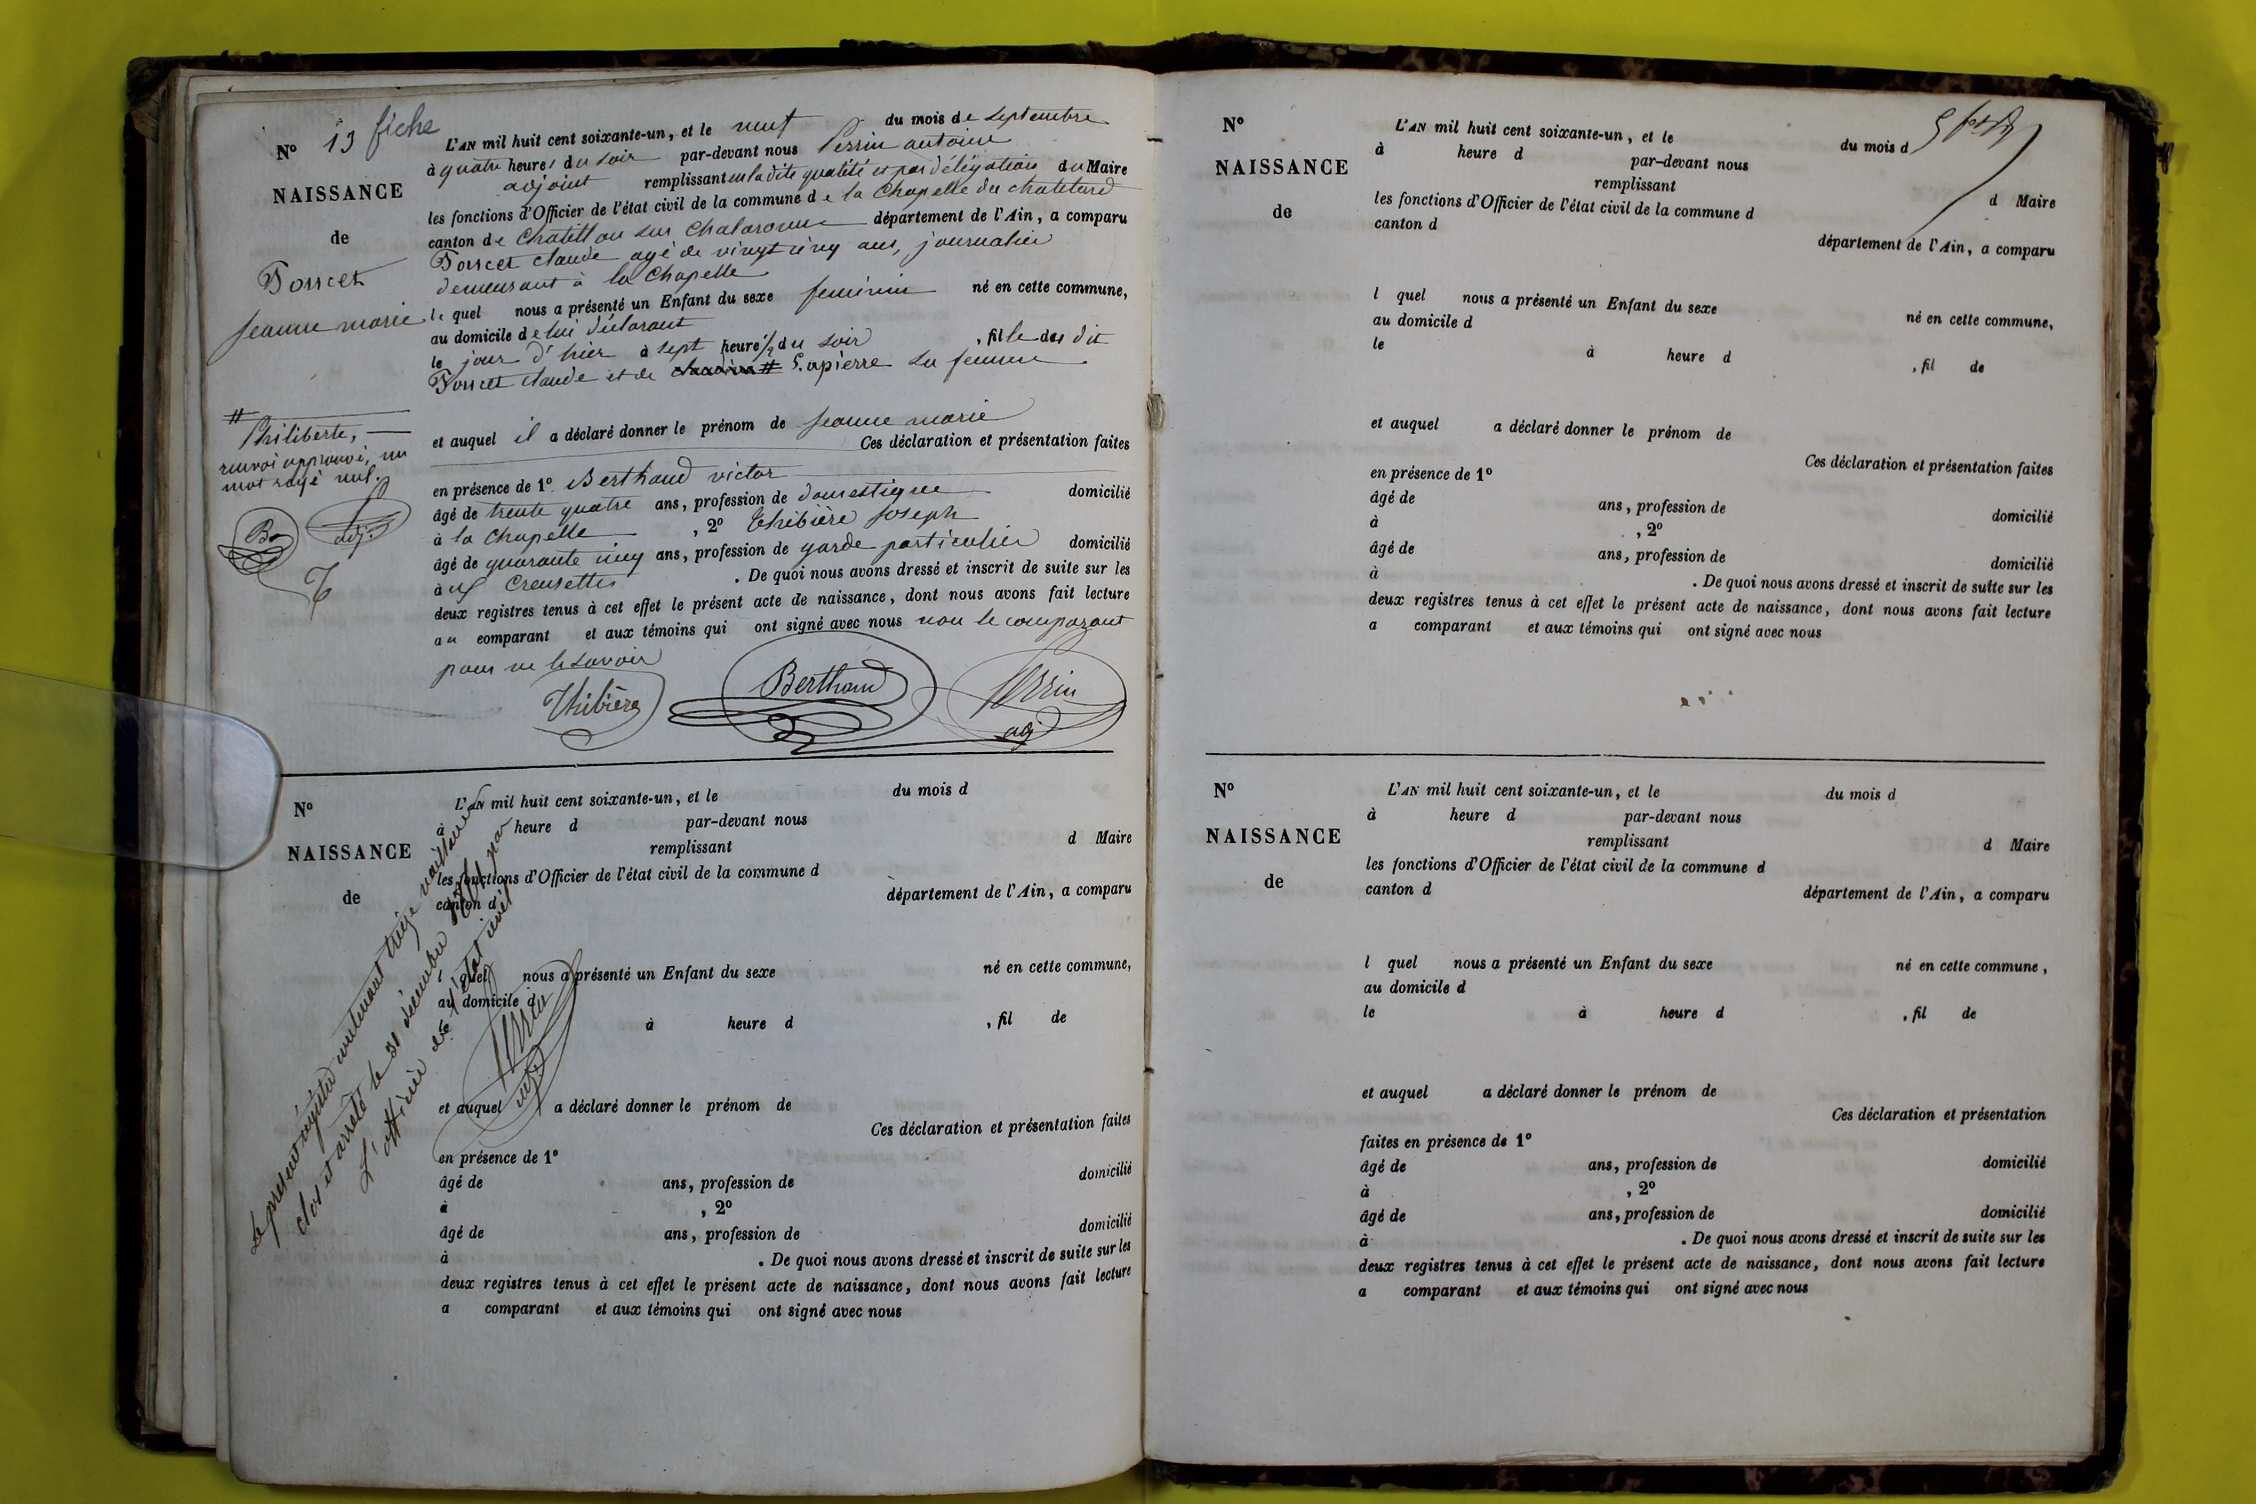 N° 13 fiche
NAISSANCE
de
Poncet
Jeanne marie
L'AN mil huit cent soixante-un, et le neuf du mois de septembre
à quatre heures du soir par-devant nous Perrin antoine
adjoint remplissant en la dite qualité et par délégation du Maire
les fonctions d'Officier de l'état civil de la commune de la Chapelle du chatelard
canton de Chatillon sur Chalaronne département de l'Ain, a comparu
Poncet claude agé de vingt cinq ans, journalier
demeurant à la Chapelle
le quel nous a présenté un Enfant du sexe feminin né en cette commune,
au domicile de lui déclarant
le jour d'hier à sept heure ½ du soir , fille des dit
Poncet claude et de # Lapierre sa femme
# Philiberte,
renvoi approuvé, un
mot rayé nul.
B
adj.
T
et auquel il a déclaré donner le prénom de Jeanne marie
Ces déclaration et présentation faites
en présence de 1° Berthaud victor
âgé de trente quatre ans, profession de domestique domicilié
à la Chapelle , 2° Thibière Joseph
âgé de quarante cinq ans, profession de garde particulier domicilié
à ux Creusettes . De quoi nous avons dressé et inscrit de suite sur les
deux registres tenus à cet effet le présent acte de naissance, dont nous avons fait lecture
au comparant et aux témoins qui ont signé avec nous non le comparant
pour ne le savoir
Thibière Berthaud Perrin
adj
N°
NAISSANCE
de
L'AN mil huit cent soixante-un, et le du mois d
à heure d par-devant nous
remplissant d Maire
les fonctions d'Officier de l'état civil de la commune d
canton d département de l'Ain, a comparu
l quel nous a présenté un Enfant du sexe né en cette commune,
au domicile d
à heure d , fil de
et auquel a déclaré donner le prénom de
Ces déclaration et présentation faites
en présence de 1°
âgé de ans, profession de domicilié
à , 2°
âgé de ans, profession de domicilié
à . De quoi nous avons dressé et inscrit de suite sur les
deux registres tenus à cet effet le présent acte de naissance, dont nous avons fait lecture
a comparant et aux témoins qui ont signé avec nous
Le present registre contenant treize naissances
clos et arrêté le 31 décembre 1861 par
L'officier de l'état civil
Perrin
adj
N°
NAISSANCE
de
L'AN mil huit cent soixante-un, et le du mois d
à heure d par-devant nous
remplissant d Maire
les fonctions d'Officier de l'état civil de la commune d
canton d département de l'Ain, a comparu
l quel nous a présenté un Enfant du sexe né en cette commune,
au domicile d
le à heure d , fil de
et auquel a déclaré donner le prénom de
Ces déclaration et présentation faites
en présence de 1°
âgé de ans, profession de domicilié
à , 2°
âgé de ans, profession de domicilié
à . De quoi nous avons dressé et inscrit de suite sur les
deux registres tenus à cet effet le présent acte de naissance, dont nous avons fait lecture
a comparant et aux témoins qui ont signé avec nous
N°
NAISSANCE
de
L'AN mil huit cent soixante-un, et le du mois d
à heure d par-devant nous
remplissant d Maire
les fonctions d'Officier de l'état civil de la commune d
canton d département de l'Ain, a comparu
l quel nous a présenté un Enfant du sexe né en cette commune,
au domicile d
le à heure d , fil de
et auquel a déclaré donner le prénom de
Ces déclaration et présentation
faites en présence de 1°
âgé de ans, profession de domicilié
à , 2°
âgé de ans, profession de domicilié
à . De quoi nous avons dressé et inscrit de suite sur les
deux registres tenus à cet effet le présent acte de naissance, dont nous avons fait lecture
a comparant et aux témoins qui ont signé avec nous